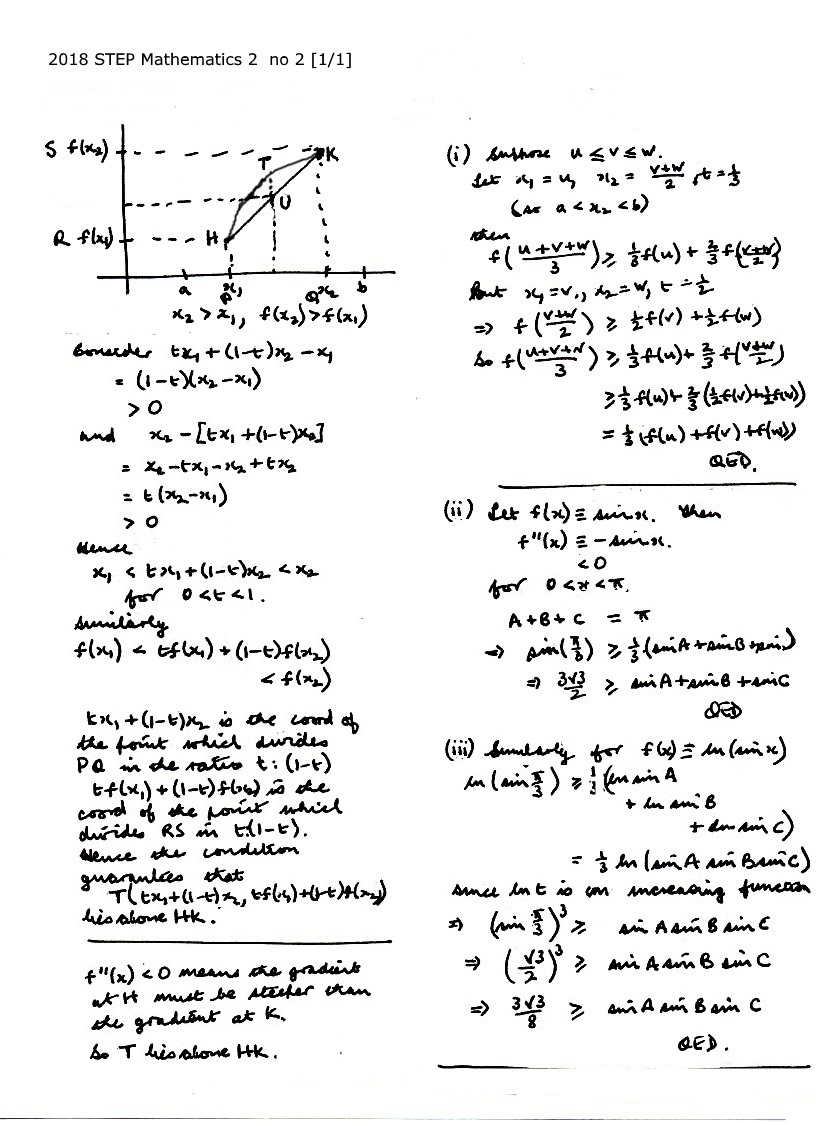 2018 STEP Mathematics 2 no 2 [1/1]
S f(x₂)
K
T
U
R f(x₁)
H
a x₁ x₂ b
P Q
x₂ > x₁, f(x₂) > f(x₁)
Consider tx₁ + (1-t)x₂ - x₁
= (1-t)(x₂-x₁)
> 0
and x₂ - [tx₁ + (1-t)x₂]
= x₂ - tx₁ - x₂ + tx₂
= t(x₂-x₁)
> 0
Hence
x₁ < tx₁ + (1-t)x₂ < x₂
for 0 < t < 1.
Similarly
f(x₁) < tf(x₁) + (1-t)f(x₂)
< f(x₂)
tx₁ + (1-t)x₂ is the coord of
the point which divides
PQ in the ratio t : (1-t)
tf(x₁) + (1-t)f(x₂) is the
coord of the point which
divides RS in t:(1-t).
Hence the condition
guarantees that
T(tx₁+(1-t)x₂, tf(x₁)+(1-t)f(x₂)
lies above HK.
f''(x) < 0 means the gradient
at H must be steeper than
the gradient at K.
So T lies above HK.
(i) Suppose u ≤ v ≤ w.
Let x₁ = u, x₂ = (v+w)/2, t = 1/3
(so a < x₂ < b)
then
f((u+v+w)/3) ≥ 1/3 f(u) + 2/3 f((v+w)/2)
Put x₁ = v, x₂ = w, t = 1/2
⇒ f((v+w)/2) ≥ 1/2 f(v) + 1/2 f(w)
So f((u+v+w)/3) ≥ 1/3 f(u) + 2/3 f((v+w)/2)
≥ 1/3 f(u) + 2/3 (1/2 f(v) + 1/2 f(w))
= 1/3 (f(u) + f(v) + f(w))
QED.
(ii) Let f(x) ≡ sin x. Then
f''(x) ≡ - sin x.
< 0
for 0 < x < π.
A + B + C = π
⇒ sin(π/3) ≥ 1/3 (sin A + sin B + sin C)
⇒ 3√3/2 ≥ sin A + sin B + sin C
QED
(iii) Similarly for f(x) ≡ ln (sin x)
ln (sin π/3) ≥ 1/3 (ln sin A
+ ln sin B
+ ln sin C)
= 1/3 ln (sin A sin B sin C)
since ln t is an increasing function
⇒ (sin π/3)³ ≥ sin A sin B sin C
⇒ (√3/2)³ ≥ sin A sin B sin C
⇒ 3√3/8 ≥ sin A sin B sin C
QED.